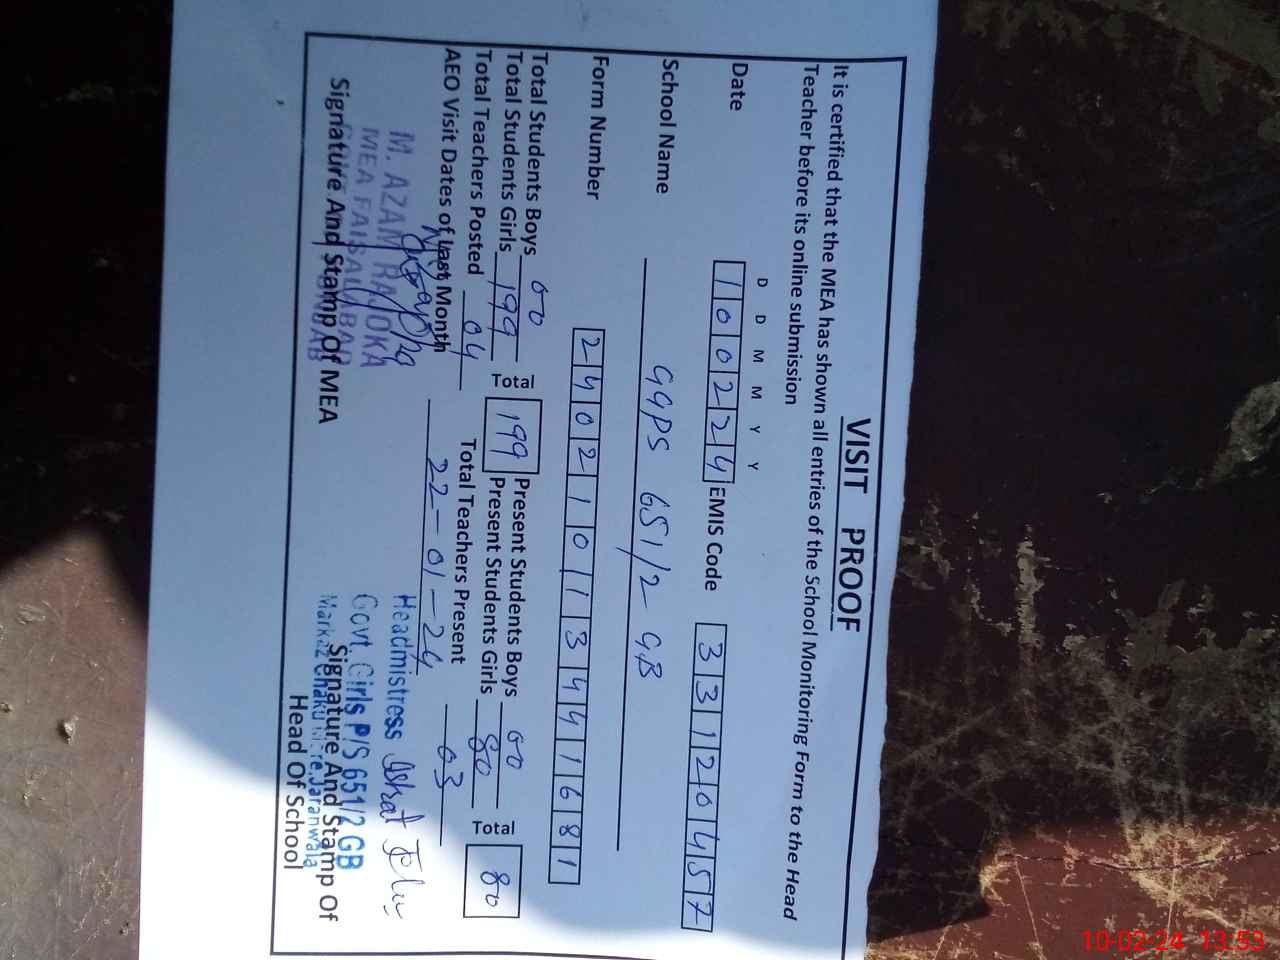 VISIT PROOF
It is certified that the MEA has shown all entries of the School Monitoring Form to the Head
Teacher before its online submission
D D M M Y Y
Date 100224 EMIS Code 33120457
School Name GGPS 651/2 GB
Form Number 24021013441681
Total Students Boys 00 Total 199 Present Students Boys 00 Total 80
Total Students Girls 199 Present Students Girls 80
Total Teachers Posted 04 Total Teachers Present 03
AEO Visit Dates of Last Month 22-01-24
M. AZAM RAJOKA
MEA FAISALABAD
Signature And Stamp Of MEA
Headmistress
Govt. Girls P/S 651/2 GB
Jaranwala
Signature And Stamp Of
Head Of School
10-02-24 13:53